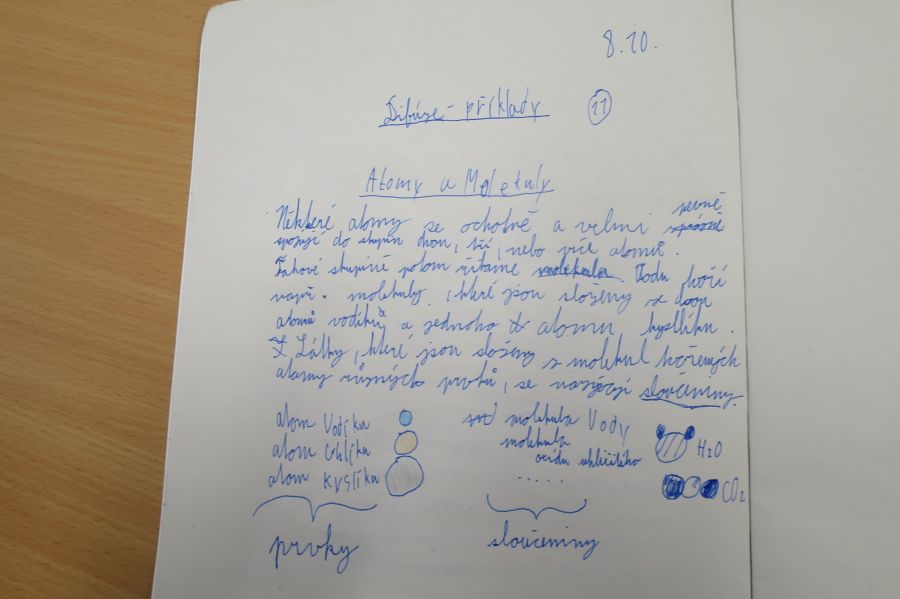 8.10.
Difúze - příklady 11
Atomy a Molekuly
Některé atomy se ochotně a velmi pevně
spojují do skupin dvou, tří, nebo více atomů.
Takové skupině potom říkáme molekula. Vodu tvoří
např. molekuly, které jsou složeny z dvou
atomů vodíků a jednoho atomu kyslíku.
Látky, které jsou složeny z molekul tvořených
atomy různých prvků, se nazývají sloučeniny.
atom Vodíka molekula Vody
atom Uhlíka molekula H2O
atom kyslíka oxidu uhličitého
..... CO2
prvky sloučeniny